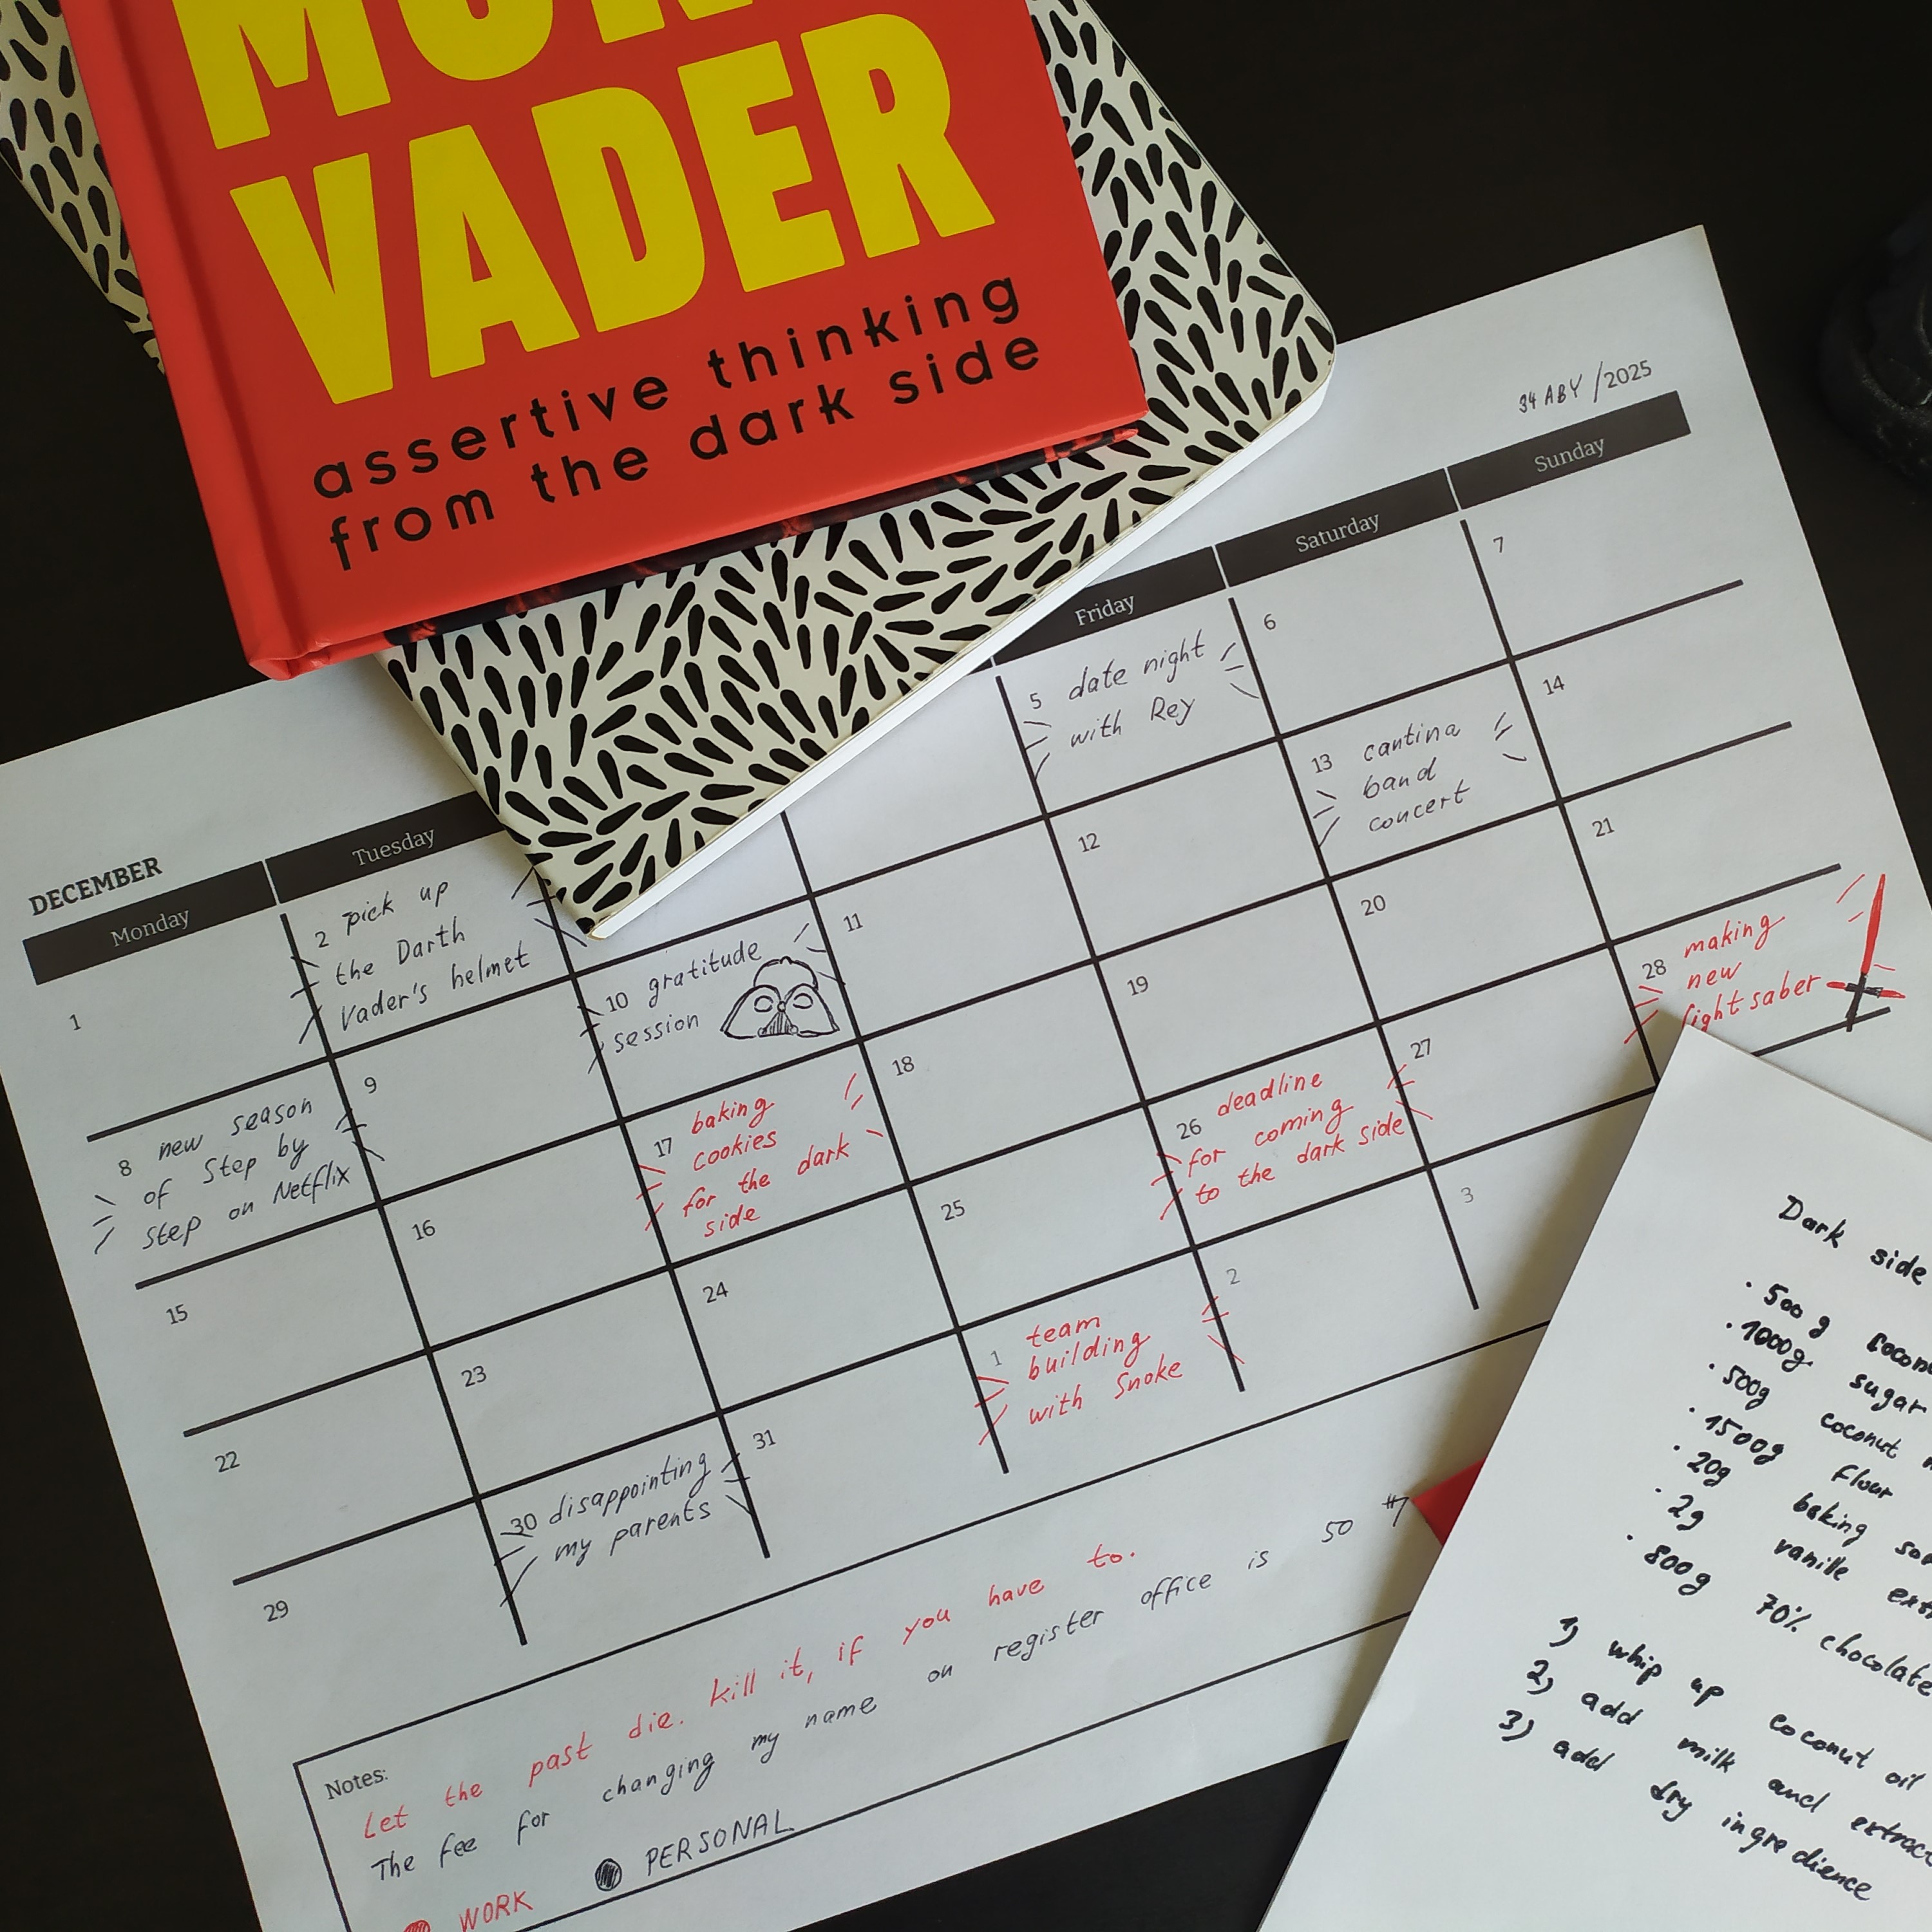 VADER
assertive thinking
from the dark side
34 ABY /2025
DECEMBER
Monday
Tuesday
Friday
Saturday
Sunday
1
2 pick up
the Darth
Vader's helmet
5 date night
with Rey
6
7
8 new season
of Step by
step on Netflix
9
10 gratitude
session
11
12
13 cantina
band
concert
14
15
16
17 baking
cookies
for the dark
side
18
19
20
21
22
23
24
25
26 deadline
for coming
to the dark side
27
28 making
new
lightsaber
29
30 disappointing
my parents
31
1 team
building
with Snoke
2
3
Notes:
Let the past die. Kill it, if you have to.
The fee for changing my name on register office is 50
WORK
PERSONAL
Dark side
• 500 g
• 1000g sugar
• 500g coconut
• 1500g flour
• 20g baking
• 2g vanille
• 800g 70% chocolate
1) whip up coconut oil
2) add milk and
3) add dry ingredience